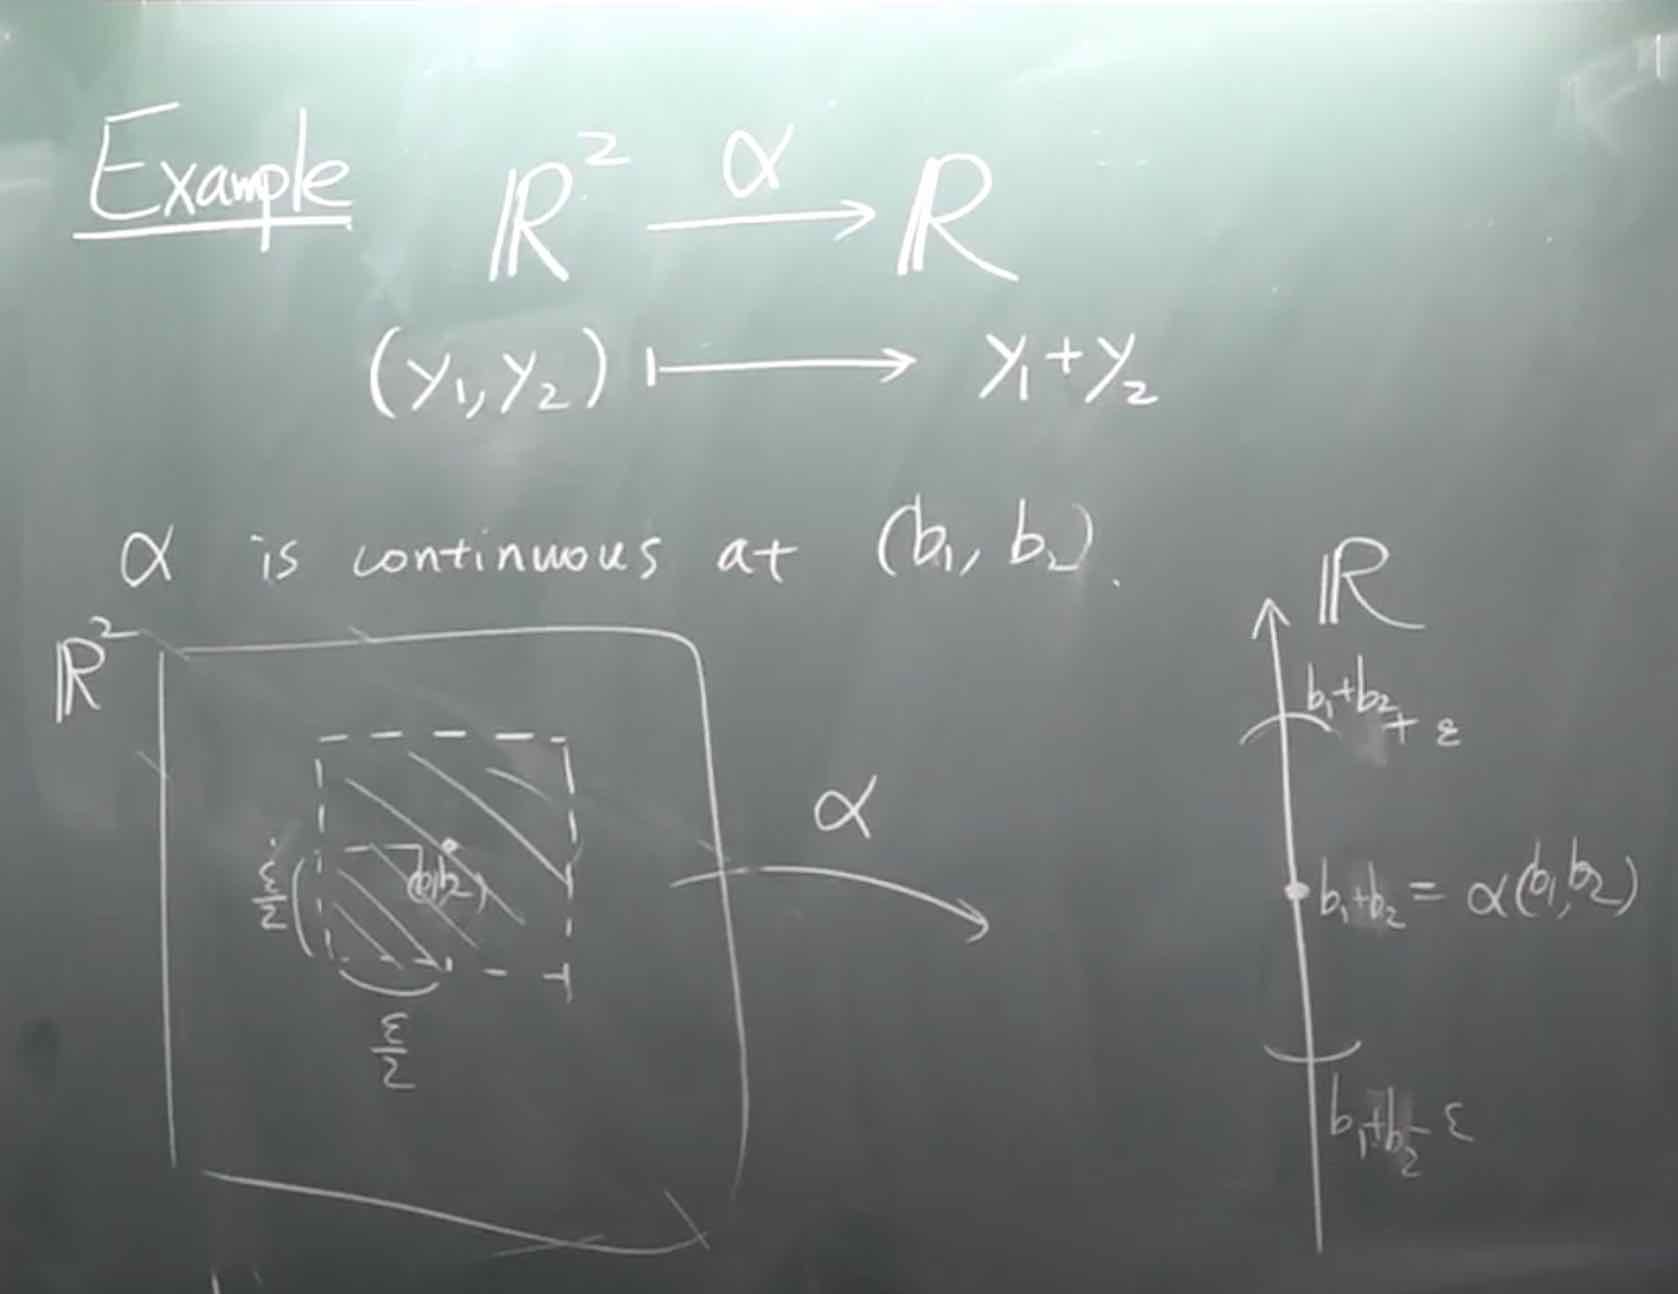 Example ℝ² α→ ℝ
(y₁, y₂) ⟼ y₁+y₂
α is continuous at (b₁, b₂).
ℝ²
ℝ
b₁+b₂ + ε
α
ε/2
(b₁, b₂)
b₁+b₂ = α(b₁, b₂)
ε/2
b₁+b₂-ε